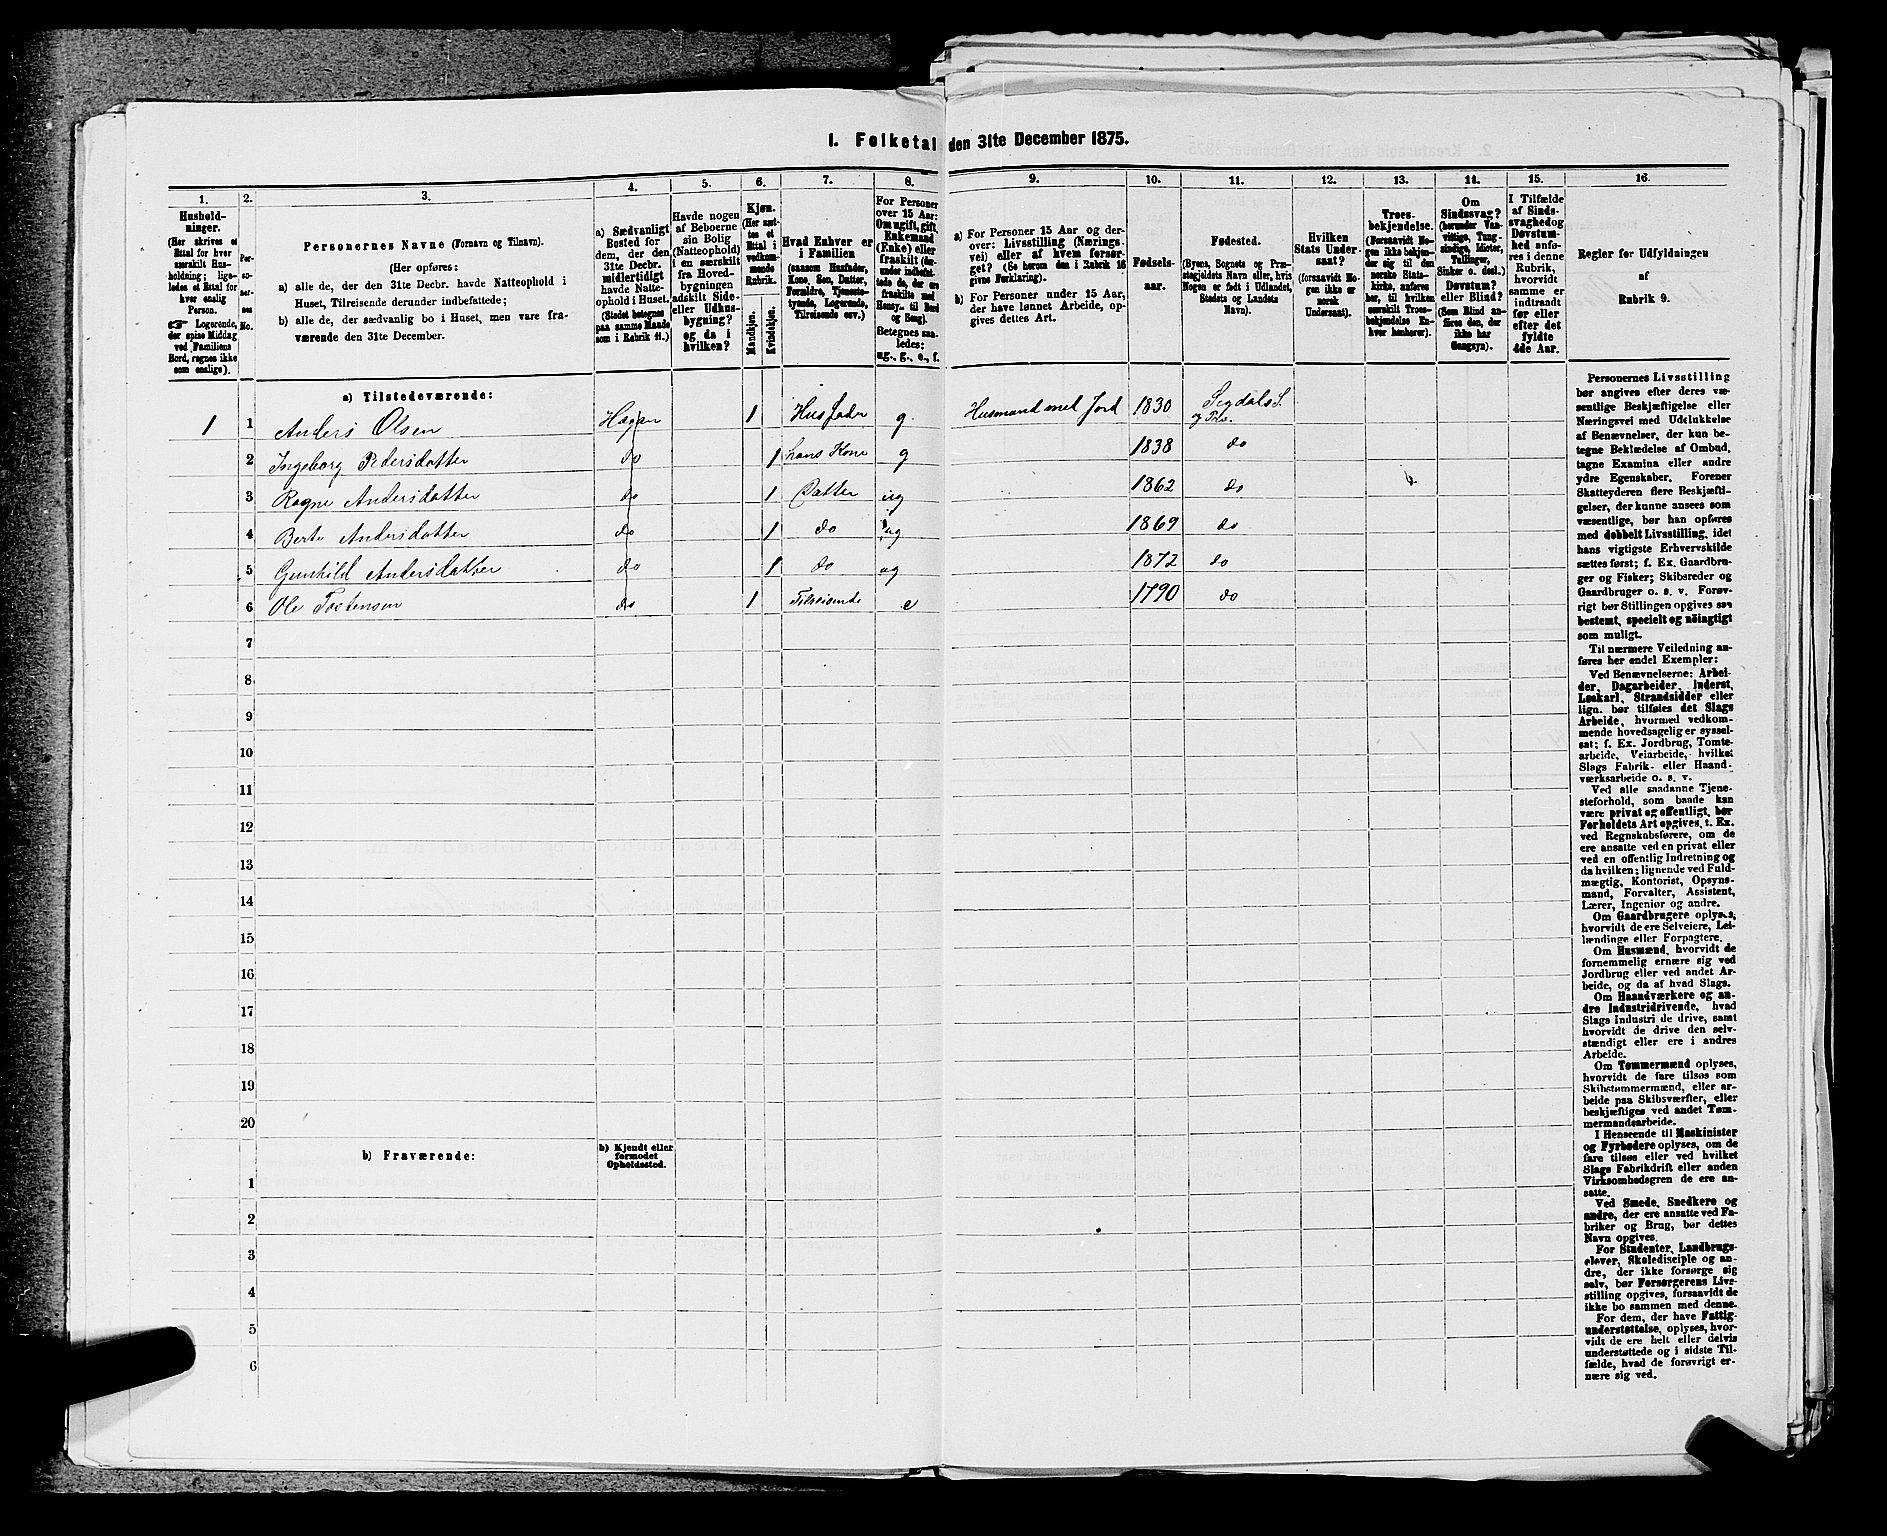 I. Folketal den 31te December 1875.
1. 2. 3. 4. 5. 6. 7. 8. 9. 10. 11. 12. 13. 14. 15. 16.
Hushold-
ninger.
(Her skrives et
Ettal for hver
særskilt Hus-
holdning; lige-
ledes et Ettal for
hver enslig
Person.
☞ Logerende,
der spise Middag
ved Familiens
Bord, regnes ikke
som enslige).
Per-
so-
ner-
nes
No.
Personernes Navne (Fornavn og Tilnavn).
(Her opføres:
a) alle de, der den 31te Decbr. havde Natteophold i
Huset, Tilreisende derunder indbefattede;
b) alle de, der sædvanlig bo i Huset, men vare fra-
værende den 31te December.
a) Sædvanligt
Bosted for
dem, der den
31te Decbr.
midlertidigt
havde Natte-
ophold i Huset.
(Stedet betegnes
paa samme Maade
som i Rubrik 11.)
Havde nogen
af Beboerne
sin Bolig
(Natteophold)
i en særskilt
fra Hoved-
bygningen
adskilt Side-
eller Udhus-
bygning?
og da i
hvilken?
Kjøn.
(Her sæt-
tes et
Ettal i
vedkom-
mende
Rubrik.
Mandkjøn.
Kvindekjøn.
Hvad Enhver er
i Familien
(saasom Husfader,
Kone, Søn, Datter,
Forældre, Tjeneste-
tyende, Logerende,
Tilreisende osv.)
For Personer
over 15 Aar:
Om ugift, gift,
Enkemand
(Enke) eller
fraskilt (der-
under indbefat-
tede de, der ere
fraskilte med
Hensyn til Bord
og Seng).
Betegnes saa-
ledes:
ug., g., e., f.
a) For Personer 15 Aar og der-
over: Livsstilling (Nærings-
vei) eller af hvem forsør-
get? (Se herom den i Rubrik 16
givne Forklaring).
b) For Personer under 15 Aar,
der have lønnet Arbeide, op-
gives dettes Art.
Fødsels-
aar.
Fødested.
(Byens, Sognets og Præ-
stegjeldets Navn eller, hvis
Nogen er født i Udlandet,
Stedets og Landets
Navn).
Hvilken
Stats Under-
saat?
(forsaavidt No-
gen ikke er
norsk
Undersaat).
Troes-
bekjendelse.
(Forsaavidt No-
gen ikke bekjen-
der sig til den
norske Stats-
kirke, anføres
her, til hvilken
særskilt Troes-
bekjendelse En-
hver henhører).
Om
Sindssvag?
(herunder Van-
vittige, Tung-
sindige, Idioter,
Tullinger,
Sinker o. desl.)
Døvstum?
eller Blind?
(Som Blind an-
føres den, der
ikke har
Gangsyn).
I Tilfælde
af Sinds-
svaghed og
Døvstum-
hed anfø-
res i denne
Rubrik,
hvorvidt
samme er
indtraadt
før eller
efter det
fyldte
4de Aar.
Regler for Udfyldningen
af
Rubrik 9.
a) Tilstedeværende:
1 1 Anders Olsen Hagan 1 Husfader g Husmand med Jord 1830 Sigdals S.
og Pr.
2 Ingeborg Pedersdatter do 1 hans Kone g 1838 do
3 Ragne Andersdatter do 1 Datter ug 1862 do
4 Berte Andersdatter do 1 do ug 1869 do
5 Gunhild Andersdatter do 1 do ug 1872 do
6 Ole Tostensen do 1 Tilreisende e 1790 do
7
8
9
10
11
12
13
14
15
16
17
18
19
20
b) Fraværende:
b) Kjendt eller
formodet
Opholdssted.
1
2
3
4
5
6
Personernes Livsstilling
bør angives efter deres væ-
sentlige Beskjæftigelse eller
Næringsvei med Udelukkelse
af Benævnelser, der kun be-
tegne Beklædelse af Ombud,
tagne Examina eller andre
ydre Egenskaber. Forener
Skatteyderen flere Beskjæfti-
gelser, der kunne ansees som
væsentlige, bør han opføres
med dobbelt Livsstilling, idet
hans vigtigste Erhvervskilde
sættes først; f. Ex. Gaardbru-
ger og Fisker; Skibsreder og
Gaardbruger o. s. v. Forøv-
rigt bør Stillingen opgives saa
bestemt, specielt og nöiagtigt
som muligt.
Til nærmere Veiledning an-
føres her endel Exempler:
Ved Benævnelserne: Arbei-
der, Dagarbeider, Inderst,
Løskarl, Strandsidder eller
lign. bør tilføies det Slags
Arbeide, hvormed vedkom-
mende hovedsagelig er syssel-
sat; f. Ex. Jordbrug, Tomte-
arbeide, Veiarbeide, hvilket
Slags Fabrik- eller Haand-
værksarbeide o. s. v.
Ved alle saadanne Tjene-
steforhold, som baade kan
være privat og offentligt, bør
Forholdets Art opgives, t. Ex.
ved Regnskabsførere, om de
ere ansatte ved en privat eller
ved en offentlig Indretning og
da hvilken; lignende ved Fuld-
mægtig, Kontorist, Opsyns-
mand, Forvalter, Assistent,
Lærer, Ingeniør og andre.
Om Gaardbrugere oplyses,
hvorvidt de ere Selveiere, Lei-
lændinge eller Forpagtere.
Om Husmænd, hvorvidt de
fornemmelig ernære sig ved
Jordbrug eller ved andet Ar-
beide, og da af hvad Slags.
Om Haandværkere og an-
dre Industridrivende, hvad
Slags Industri de drive, samt
hvorvidt de drive den selv-
stændigt eller ere i andres
Arbeide.
Om Tømmermænd oplyses,
hvorvidt de fare tilsøs som
Skibstømmermænd, eller ar-
beide paa Skibsværfter, eller
beskjæftiges ved andet Tøm-
mermandsarbeide.
I Henseende til Maskinister
og Fyrbødere oplyses, om de
fare tilsøs eller ved hvilket
Slags Fabrikdrift eller anden
Virksomhedsgren de ere an-
satte.
Ved Smede, Snedkere og
andre, der ere ansatte ved Fa-
briker og Brug, bør dettes
Navn opgives.
For Studenter, Landbrugs-
elever, Skoledisciple og an-
dre, der ikke forsørge sig
selv, bør Forsørgerens Livs-
stilling opgives, forsaavidt de
ikke bo sammen med denne.
For dem, der have Fattig-
understøttelse, oplyses, hvor-
vidt de ere helt eller delvis
understøttede og i sidste Til-
fælde, hvad de forøvrigt er-
nære sig ved.